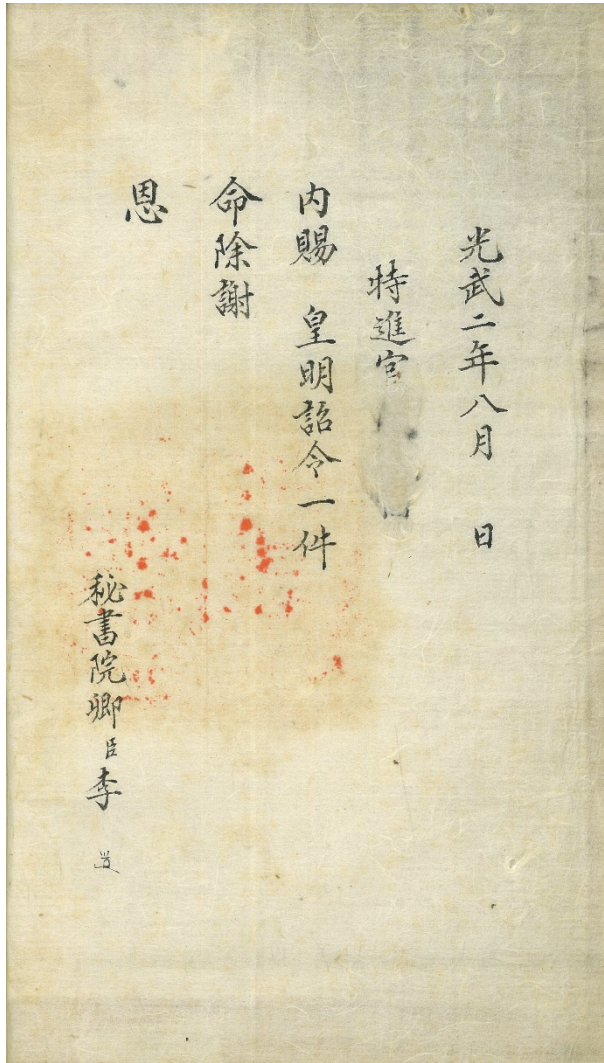 光武二年八月 日
特進官
内賜 皇明詔令一件
命除謝
恩
秘書院卿臣李